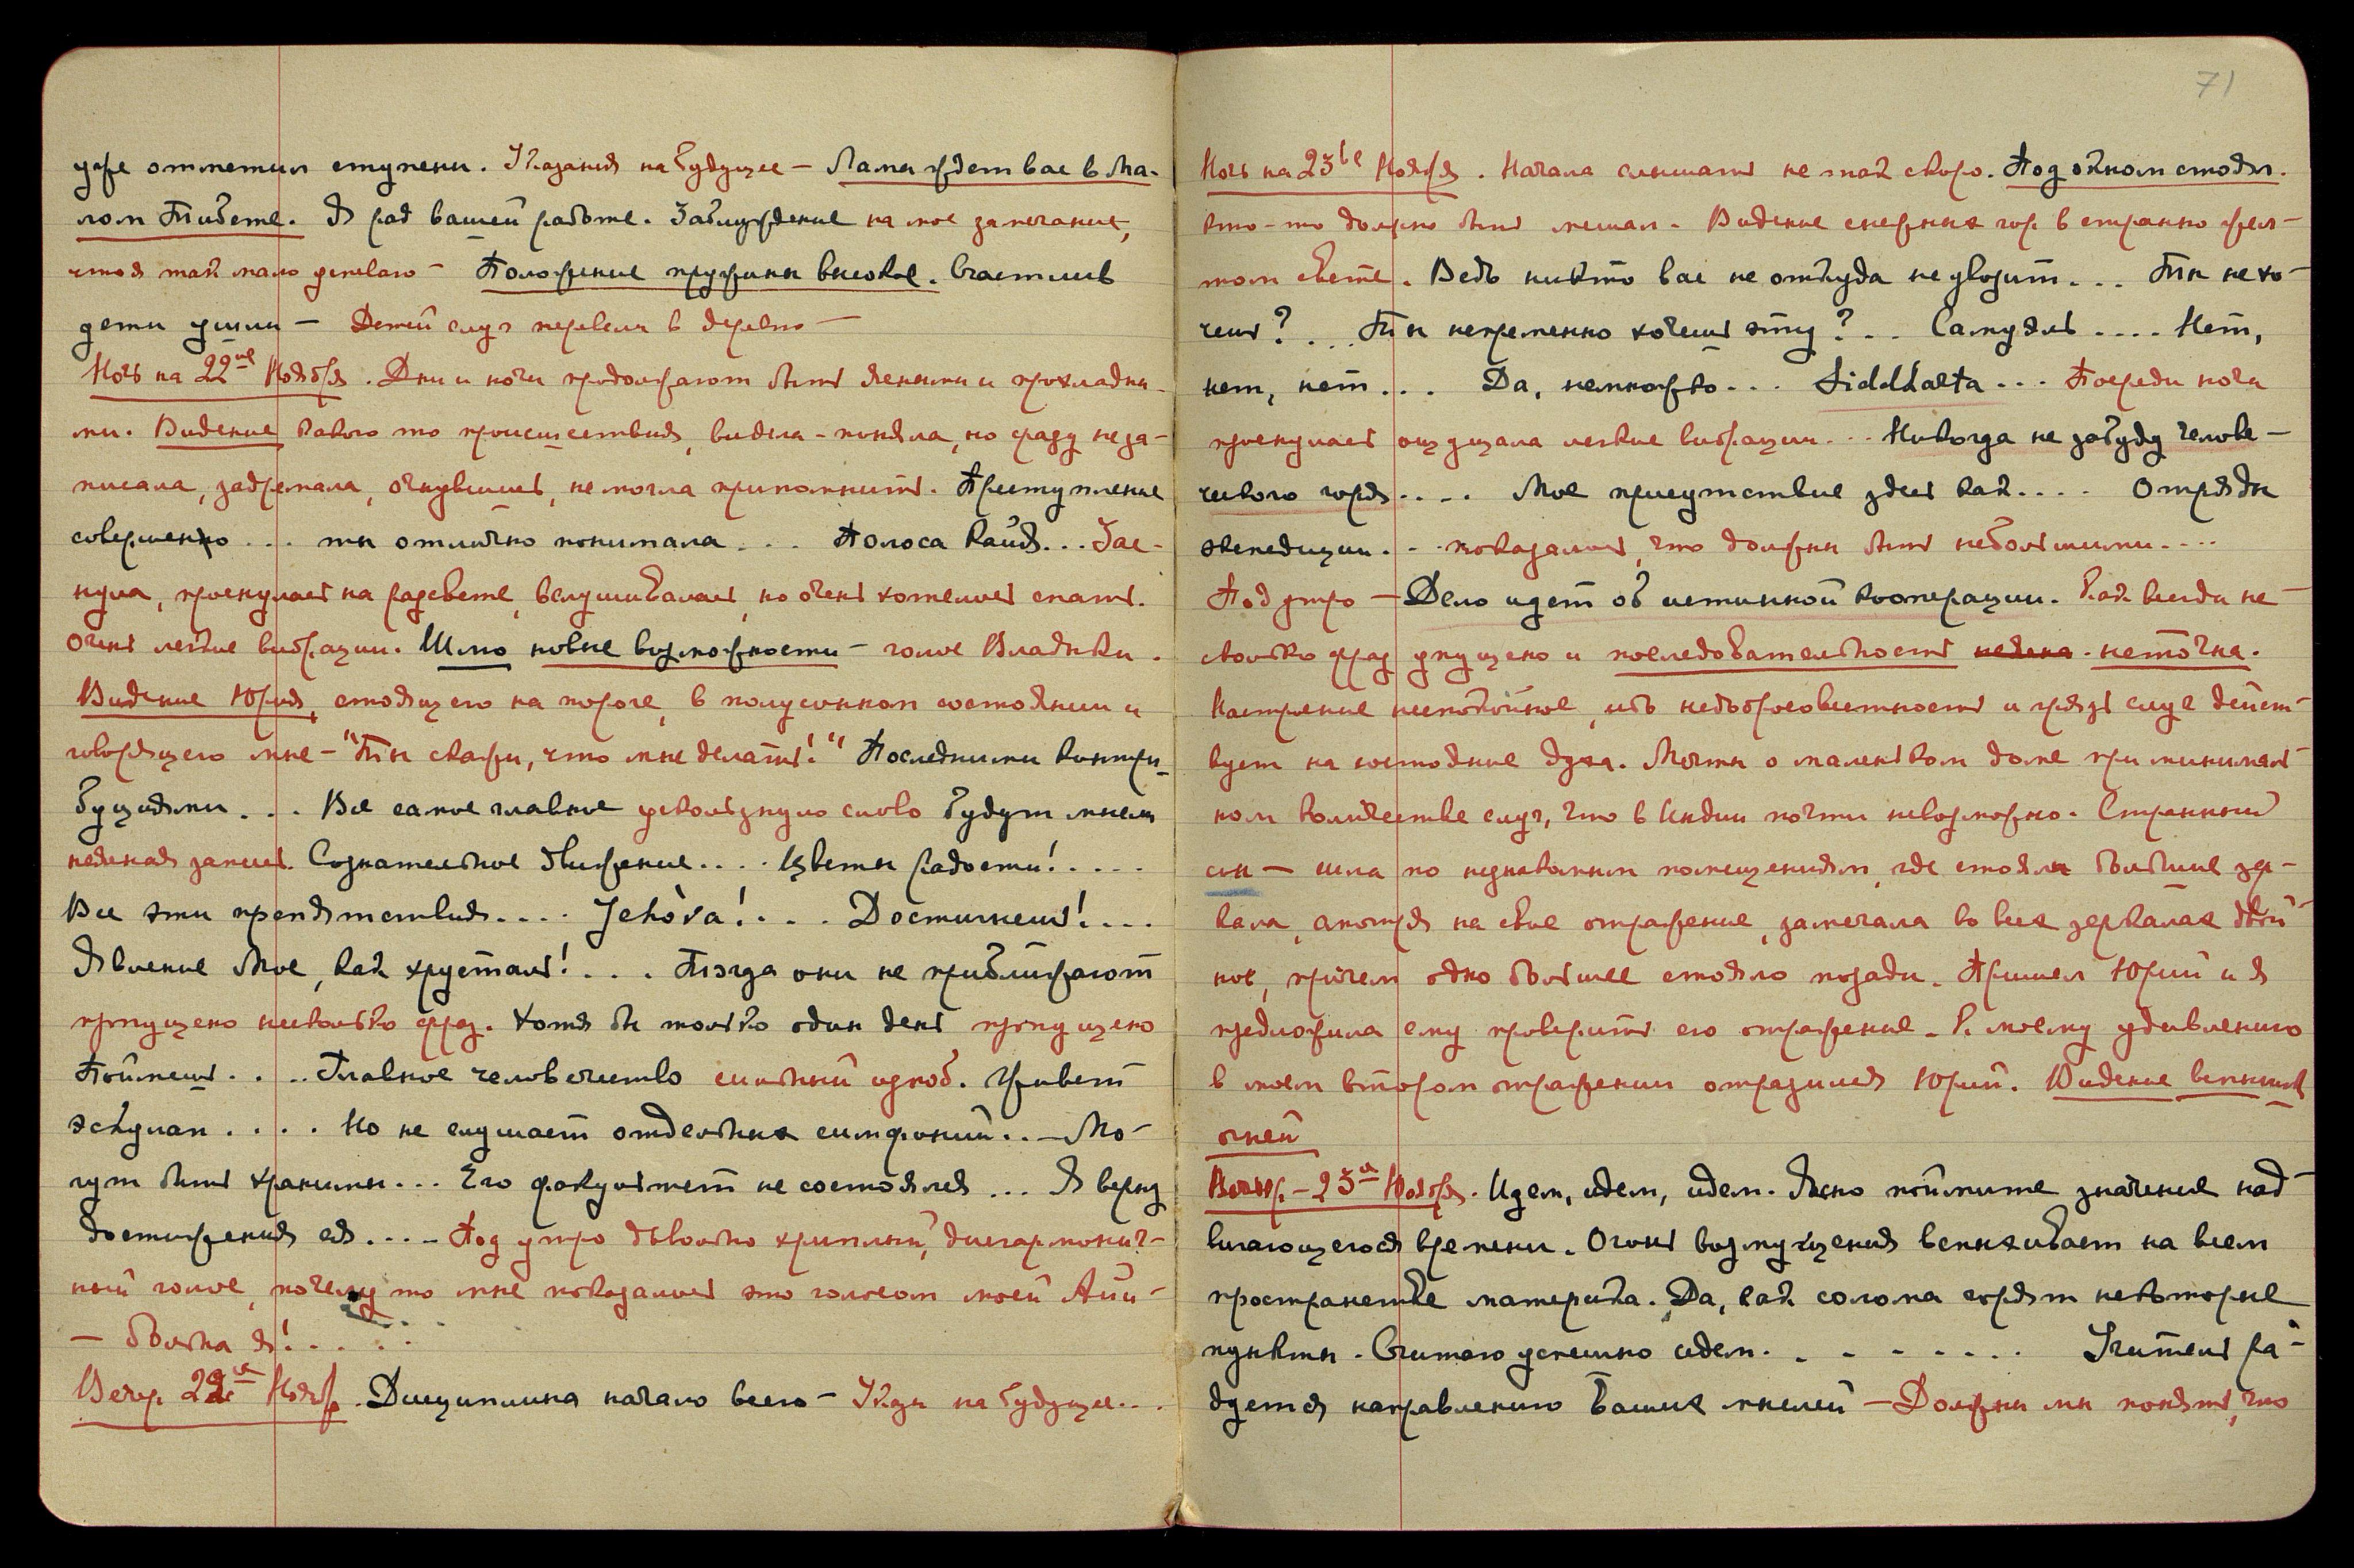 уже отметил ступени. Указания на будущее – Ламы ждет вас в Ма-
лом Тибете. Я рад вашей работе. Заблуждение на мое замечание,
что я так мало успеваю – Положение пружины высокое. Счастлив
дети ушли – Детей слуг перевели в деревню –
Ночь на 22ое Ноября. Дни и ночи продолжают быть ясными и прохладны-
ми. Видение какого то происшествия, видела - поняла, но сразу не за-
писала, задремала, очнувшись, не могла припомнить. Преступление
совершено ... ты отлично понимала ... Полоса Кайя ... Зас-
нула, проснулась на рассвете, вслушивалась, но очень хотелось спать.
Очень легкие вибрации. Шлю новые возможности – голос Владыки.
Видение Юрия, стоящего на пороге, в полусонном состоянии и
говорящего мне – "Ты скажи, что мне делать!" Последними контри-
буциями ... Все самое главное ускользнуло слово будут мнения
неясная запись. Сознательное движение .... Цветы радости! .....
Все эти препятствия .... Jehova! ... Достигнешь! ....
Явление Мое, как хрусталь! ... Тогда они не приближают
пропущено несколько фраз. Хотя бы только один день пропущено
Поймешь .. .. Главное человечество сильный озноб. Привет
эскулап .... Но не слушает отдельных симфоний .. – Мо-
гут быть хранимы ... Его факультет не состоялся ... Я верну
достижения ея .... – Под утро довольно хриплый, дисгармонич-
ный голос, почему то мне показалось это голосом моей Аиы-
– больна я! .....
Вечер 22ое Ноября. Дисциплина начало всего – Указы на будущее ...
71
Ночь на 23ье Ноября. Начала слышать не так скоро. Под окном стоял.
кто-то должно быть мешал. Видение снежных гор в странно жел-
том свете. Ведь никто вас не откуда не увозит ... Ты не хо-
чешь? ... Ты непременно хочешь эту? .. Самуяль .... Нет,
нет, нет ... Да, немножко ... Siddharta ... Посреди ночи
проснулась ощущала легкие вибрации ... Никогда не забуду челове-
ческого горя .... Мое присутствие здесь как .... Отряды
экспедиции ... показалось, что должны быть небольшими ....
Под утро – Дело идет об истинной кооперации. Как всегда не-
сколько фраз упущено и последовательность неясна. неточна.
Настроение неспокойное, ибо недобросовестность и грязь слуг дейст-
вует на состояние духа. Мечты о маленьком доме при минималь-
ном количестве слуг, что в Индии почти невозможно. Странный
сон – шла по незнакомым помещениям, где стояли большие зер-
кала, смотря на свое отражение, замечала во всех зеркалах двой-
ное, причем одно большее стояло позади. Пришел Юрий и я
предложила ему проверить его отражение. К моему удивлению
в моем втором отражении отразился Юрий. Видение вспышки
огней
Вечер – 23е Ноября. Идем, идем, идем. Ясно поймите значение над-
вигающегося времени. Огонь возмущения вспыхивает на всем
пространстве материка. Да, как солома горят некоторые
пункты. Считаю успешно идем. . – – – – ... Учитель ра-
дуется направлению Ваших мыслей – Должны мы понять, что